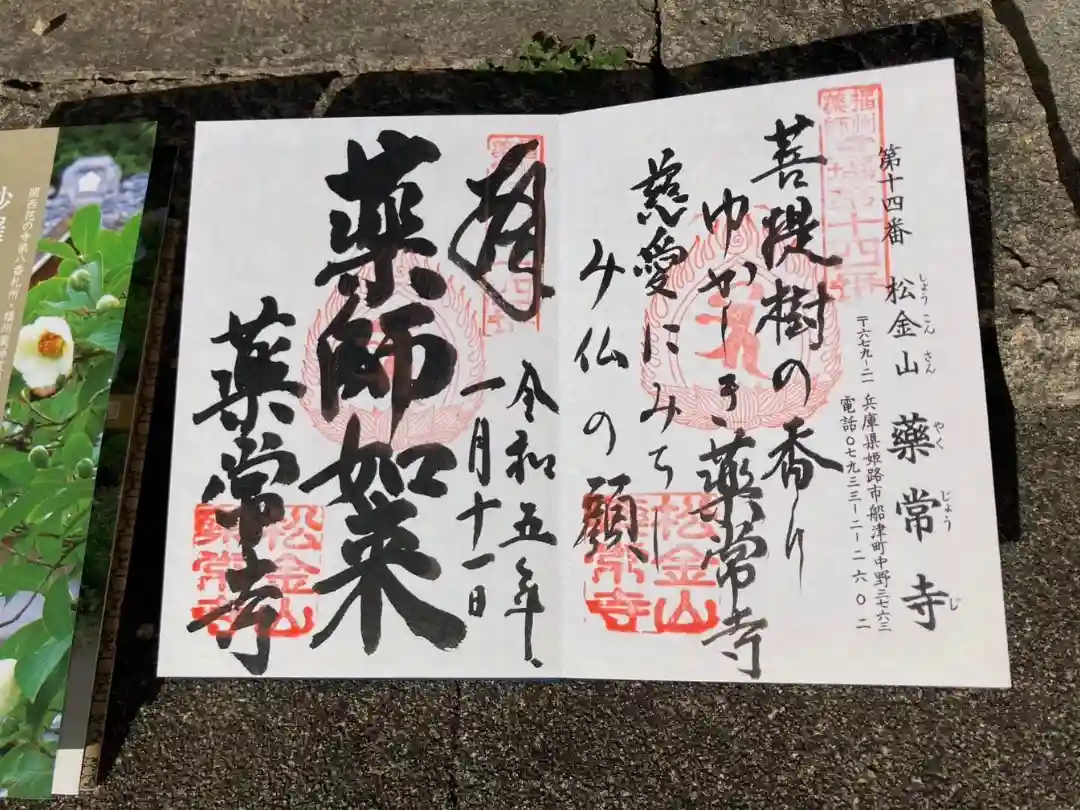 第十四番
松金山 薬常寺
しょうこんさん やくじょうじ
〒六七九-二一 兵庫県姫路市船津町中野三七六三
電話〇七九三三-二-二六〇二
菩提樹の香り
ゆかしき薬常寺
慈愛にみちし
み仏の顔
松金山
薬常寺
拝
令和五年
一月十一日
薬師如来
薬常寺
松金山
薬常寺